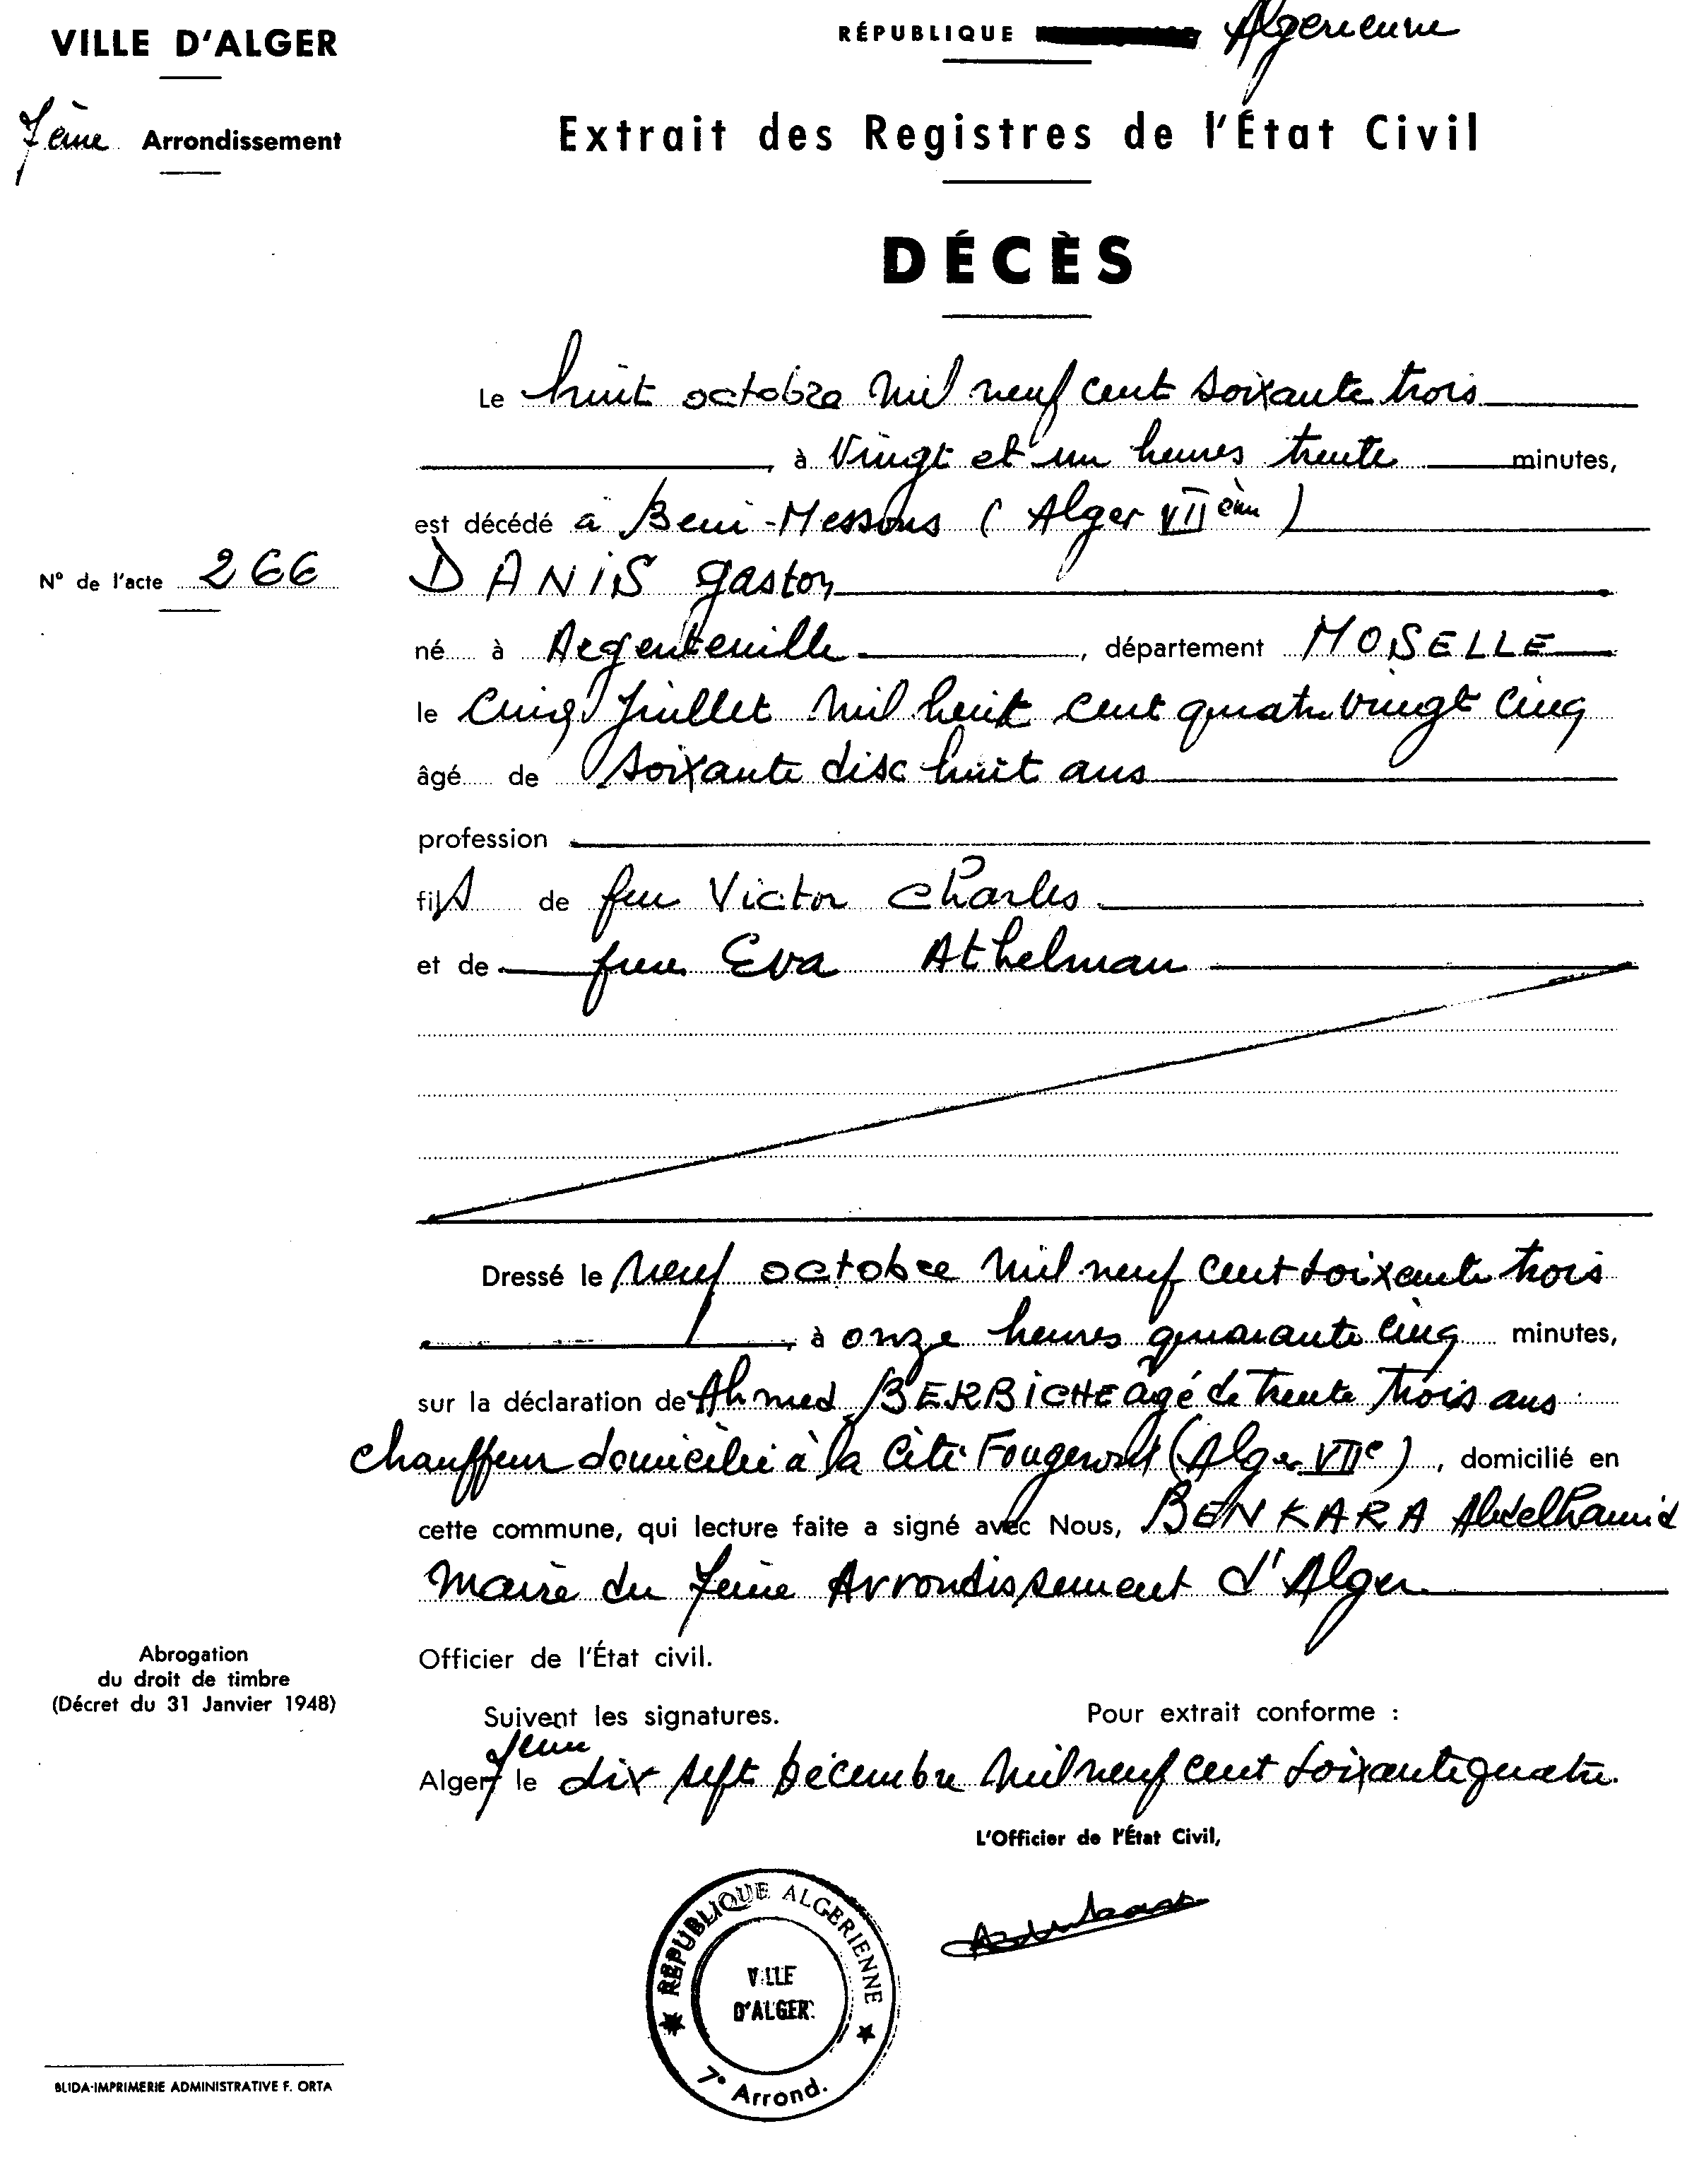 VILLE D'ALGER
RÉPUBLIQUE Algérienne
7ème Arrondissement
Extrait des Registres de l'État Civil
DÉCÈS
Le huit octobre mil neuf cent soixante trois
à vingt et un heures trente minutes,
est décédé à Beni-Messous (Alger VII ème)
N° de l'acte 266
DANIS gaston
né à Argenteuille, département MOSELLE
le cinq Juillet mil huit cent quatre vingt cinq
âgé de soixante disc huit ans
profession
fils de feu Victor Charles
et de feue Eva Athelman
Dressé le neuf octobre mil neuf cent soixante trois
à onze heures quarante cinq minutes,
sur la déclaration de Ahmed BERBICHE agé de trente trois ans
chauffeur domicilié à la Cité Fougeroux (Alger VIIe), domicilié en
cette commune, qui lecture faite a signé avec Nous, BENKARA Abdelhamid
Maire du 7eme Arrondissement d'Alger
Officier de l'État civil.
Abrogation
du droit de timbre
(Décret du 31 Janvier 1948)
Suivent les signatures.
Pour extrait conforme :
Alger 7eme le dix sept Décembre mil neuf cent soixante quatre.
L'Officier de l'État Civil,
RÉPUBLIQUE ALGERIENNE
VILLE
D'ALGER
7e Arrond.
BLIDA-IMPRIMERIE ADMINISTRATIVE F. ORTA